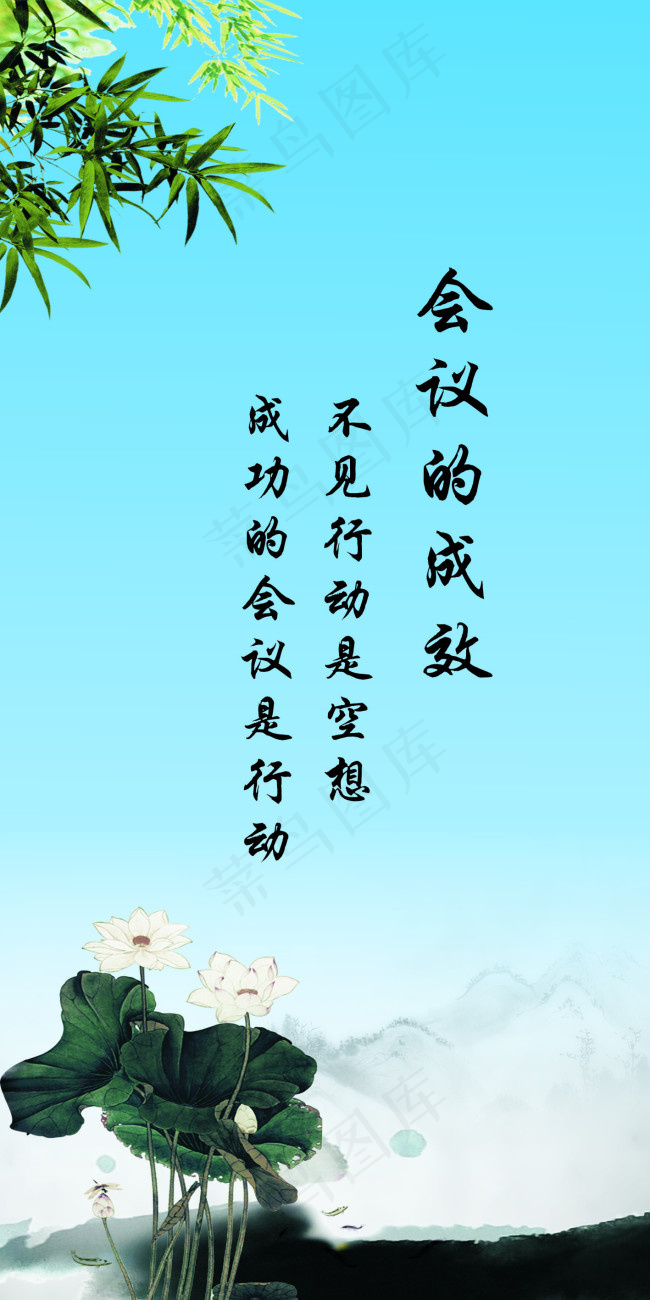 会议的成效
不见行动是空想
成功的会议是行动
菜鸟图库
菜鸟图库
菜鸟图库
菜鸟图库